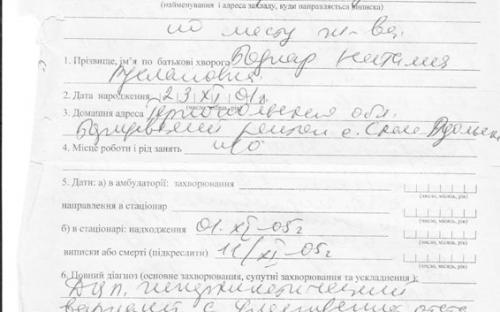 (найменування і адреса закладу, куди направляється виписка)
по месту ж-ва.
1. Прізвище, ім'я по батькові хворого Боднар Наталия
Руслановна
2. Дата народження 23 XI 01г.
(число, місяць, рік)
3. Домашня адреса Тернопольская обл.
район с.
4. Місце роботи і рід занять н/о
5. Дати: а) в амбулаторії: захворювання
(число, місяць, рік)
направлення в стаціонар
(число, місяць, рік)
б) в стаціонарі: надходження 01. XI-05г
(число, місяць, рік)
виписки або смерті (підкреслити) 11/XI-05г
(число, місяць, рік)
6. Повний діагноз (основне захворювання, супутні захворювання та ускладнення):
ДЦП, гиперкинетический
вариант с